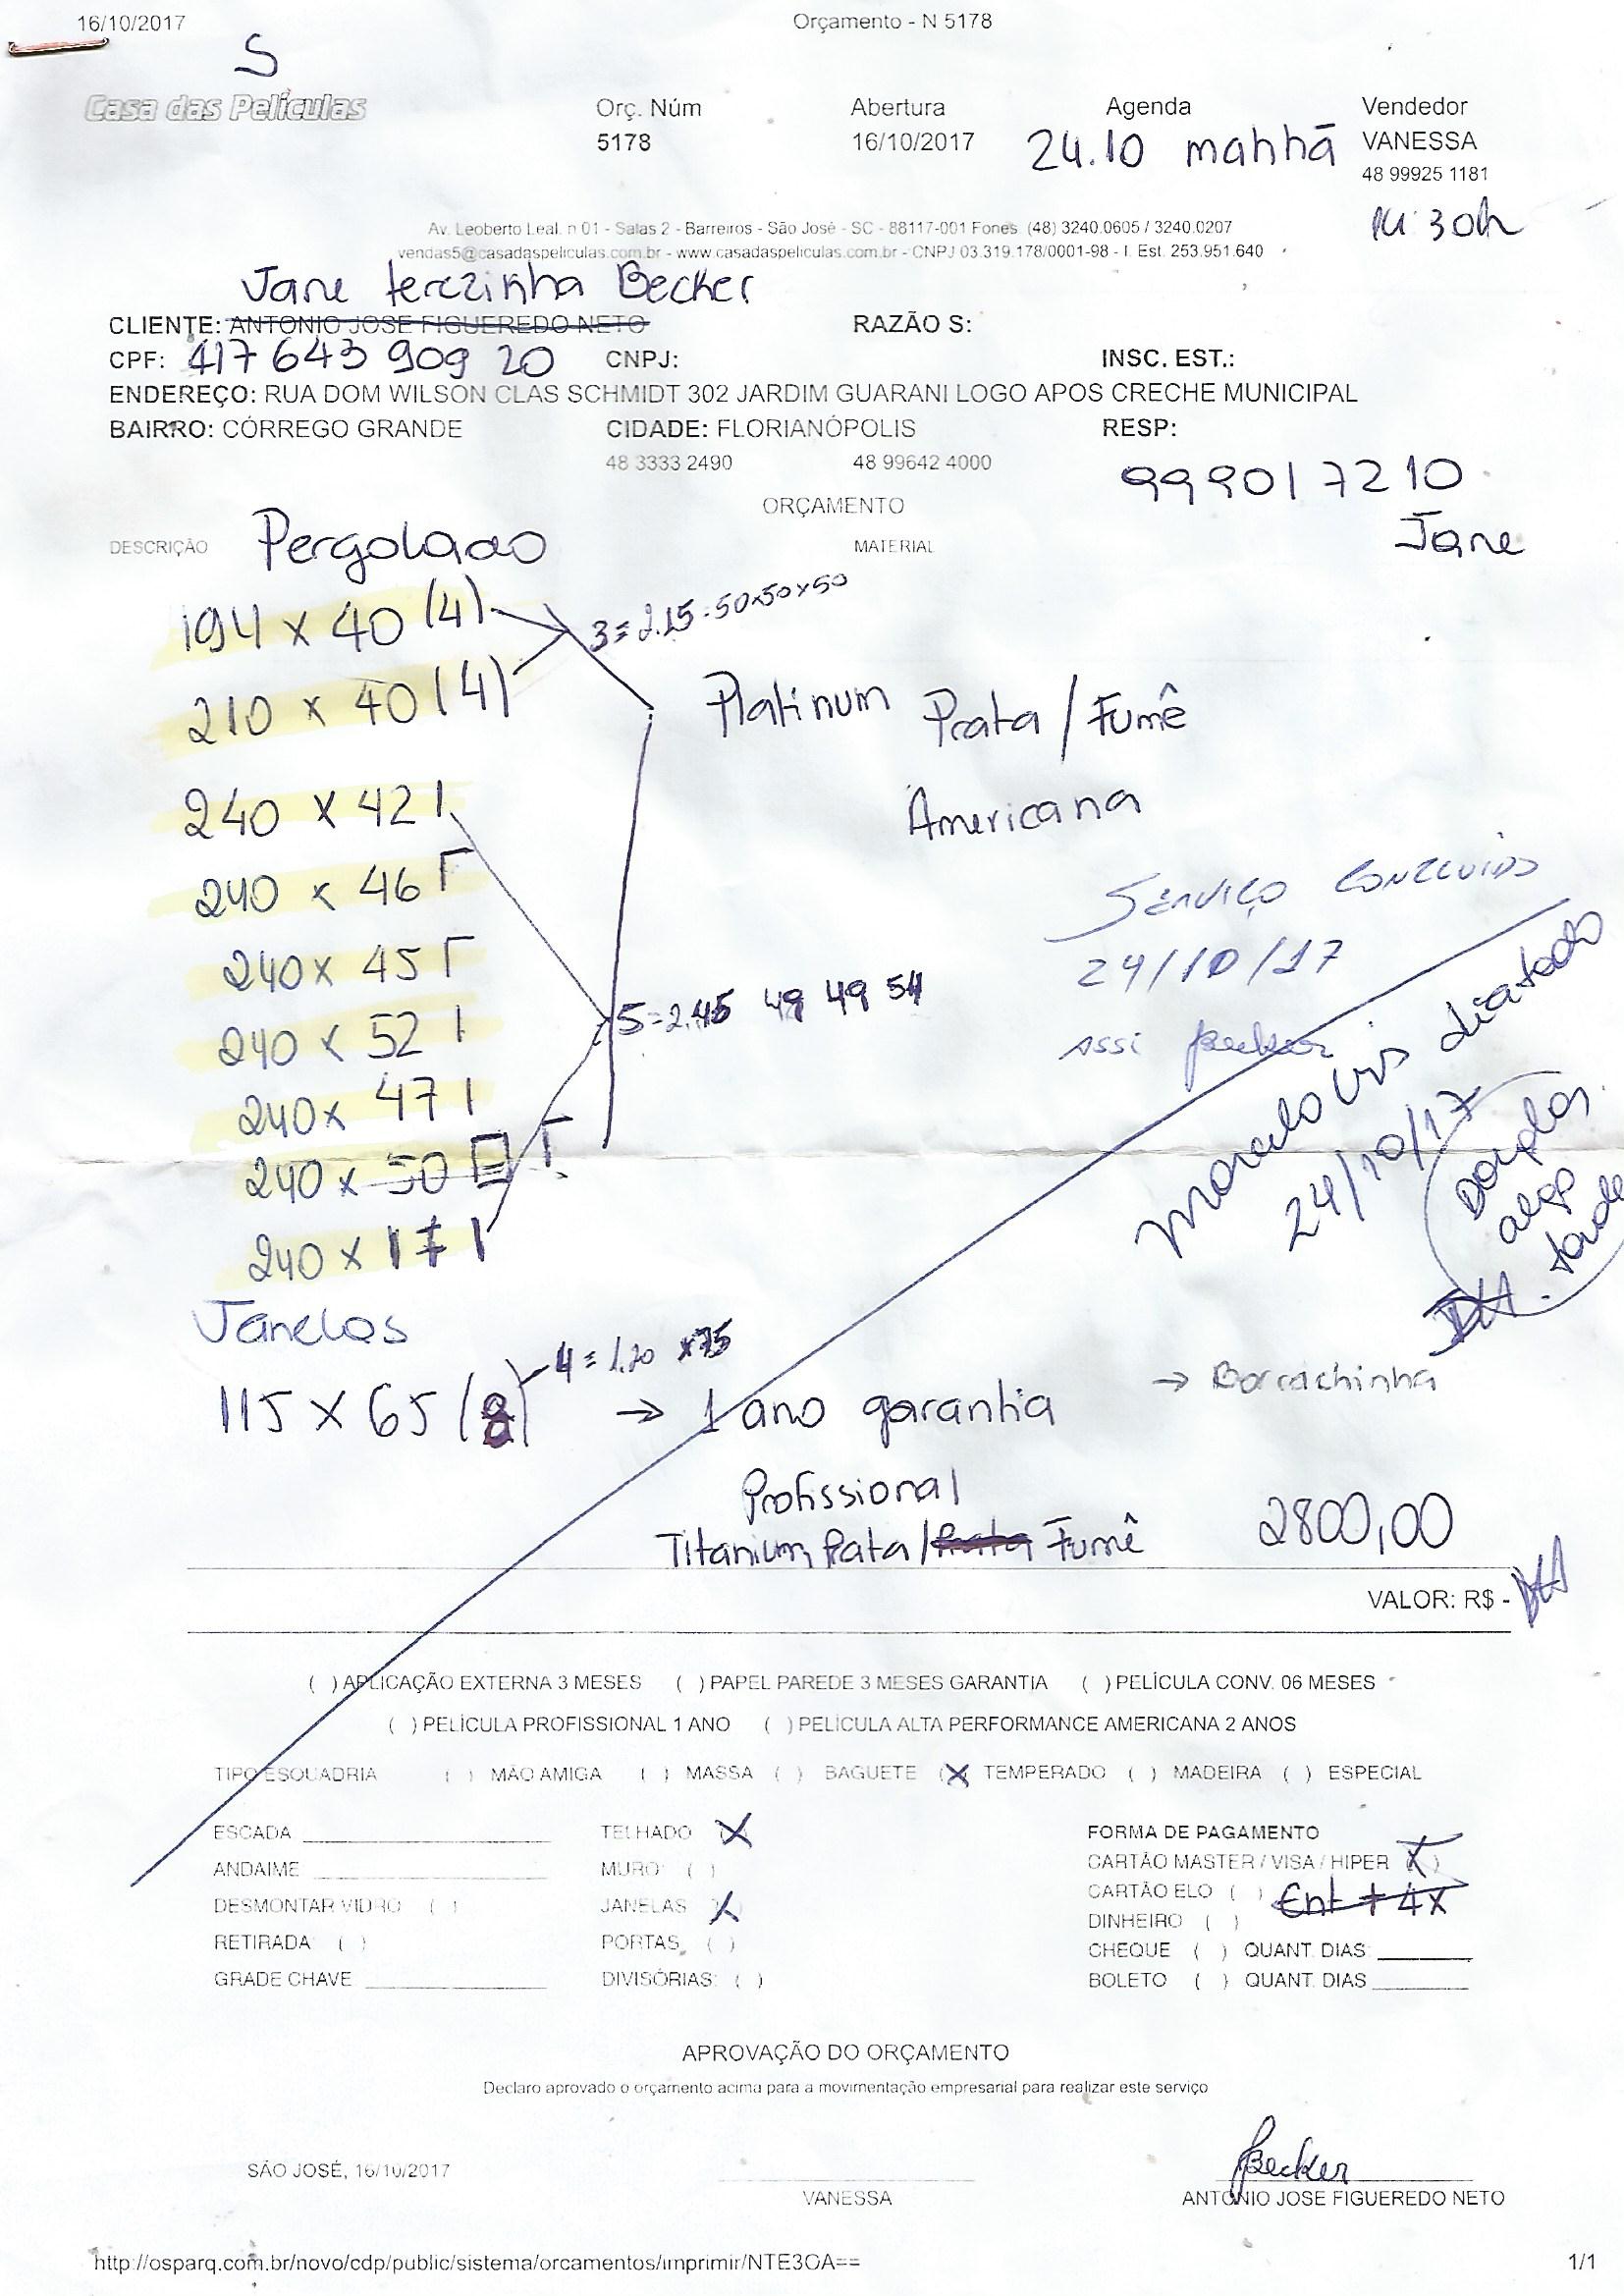 16/10/2017 Orçamento - N 5178
S
Casa das Películas Orç. Núm Abertura Agenda Vendedor
5178 16/10/2017 24.10 manhã VANESSA
48 99925 1181
Av. Leoberto Leal. n 01 - Salas 2 - Barreiros - São José - SC - 88117-001 Fones (48) 3240.0605 / 3240.0207
:30h
vendas5@casadaspeliculas.com.br - www.casadaspeliculas.com.br - CNPJ 03.319.178/0001-98 - I. Est. 253.951.640
Jane terezinha Becker
CLIENTE: ANTONIO JOSE FIGUEREDO NETO RAZÃO S:
CPF: 417 643 909 20 CNPJ: INSC. EST.:
ENDEREÇO: RUA DOM WILSON CLAS SCHMIDT 302 JARDIM GUARANI LOGO APOS CRECHE MUNICIPAL
BAIRRO: CÓRREGO GRANDE CIDADE: FLORIANÓPOLIS RESP:
48 3333 2490 48 99642 4000
999017210
ORÇAMENTO
DESCRIÇÃO Pergolado MATERIAL Jane
194 x 40 (4) 3 = 2.15 - 50x50x50
210 x 40 (4) Platinum Prata / Fumê
240 x 42 Americana
240 x 46 SERVIÇO CONCLUIDO
240 x 45 24/10/17
240 x 52 5 = 2.45 49 49 54
ASSI Becker
240 x 47 24/10/17
240 x 50
240 x 17
Janelas
115 x 65 (8) 4 = 1.20 x 75 → 1 ano garantia → Borrachinha
Profissional
Titanium Prata / Prata Fumê 2800,00
VALOR: R$ -
( ) APLICAÇÃO EXTERNA 3 MESES ( ) PAPEL PAREDE 3 MESES GARANTIA ( ) PELÍCULA CONV. 06 MESES
( ) PELÍCULA PROFISSIONAL 1 ANO ( ) PELÍCULA ALTA PERFORMANCE AMERICANA 2 ANOS
TIPO ESQUADRIA ( ) MÃO AMIGA ( ) MASSA ( ) BAGUETE (X) TEMPERADO ( ) MADEIRA ( ) ESPECIAL
ESCADA TELHADO X FORMA DE PAGAMENTO
ANDAIME MURO ( ) CARTÃO MASTER / VISA / HIPER (X)
DESMONTAR VIDRO ( ) JANELAS X CARTÃO ELO ( ) Ent + 4x
RETIRADA ( ) PORTAS ( ) DINHEIRO ( )
CHEQUE ( ) QUANT. DIAS:
GRADE CHAVE DIVISÓRIAS: ( ) BOLETO ( ) QUANT. DIAS
APROVAÇÃO DO ORÇAMENTO
Declaro aprovado o orçamento acima para a movimentação empresarial para realizar este serviço
SÃO JOSÉ, 16/10/2017 Becker
VANESSA ANTONIO JOSE FIGUEREDO NETO
http://osparq.com.br/novo/cdp/public/sistema/orcamentos/imprimir/NTE3OA== 1/1